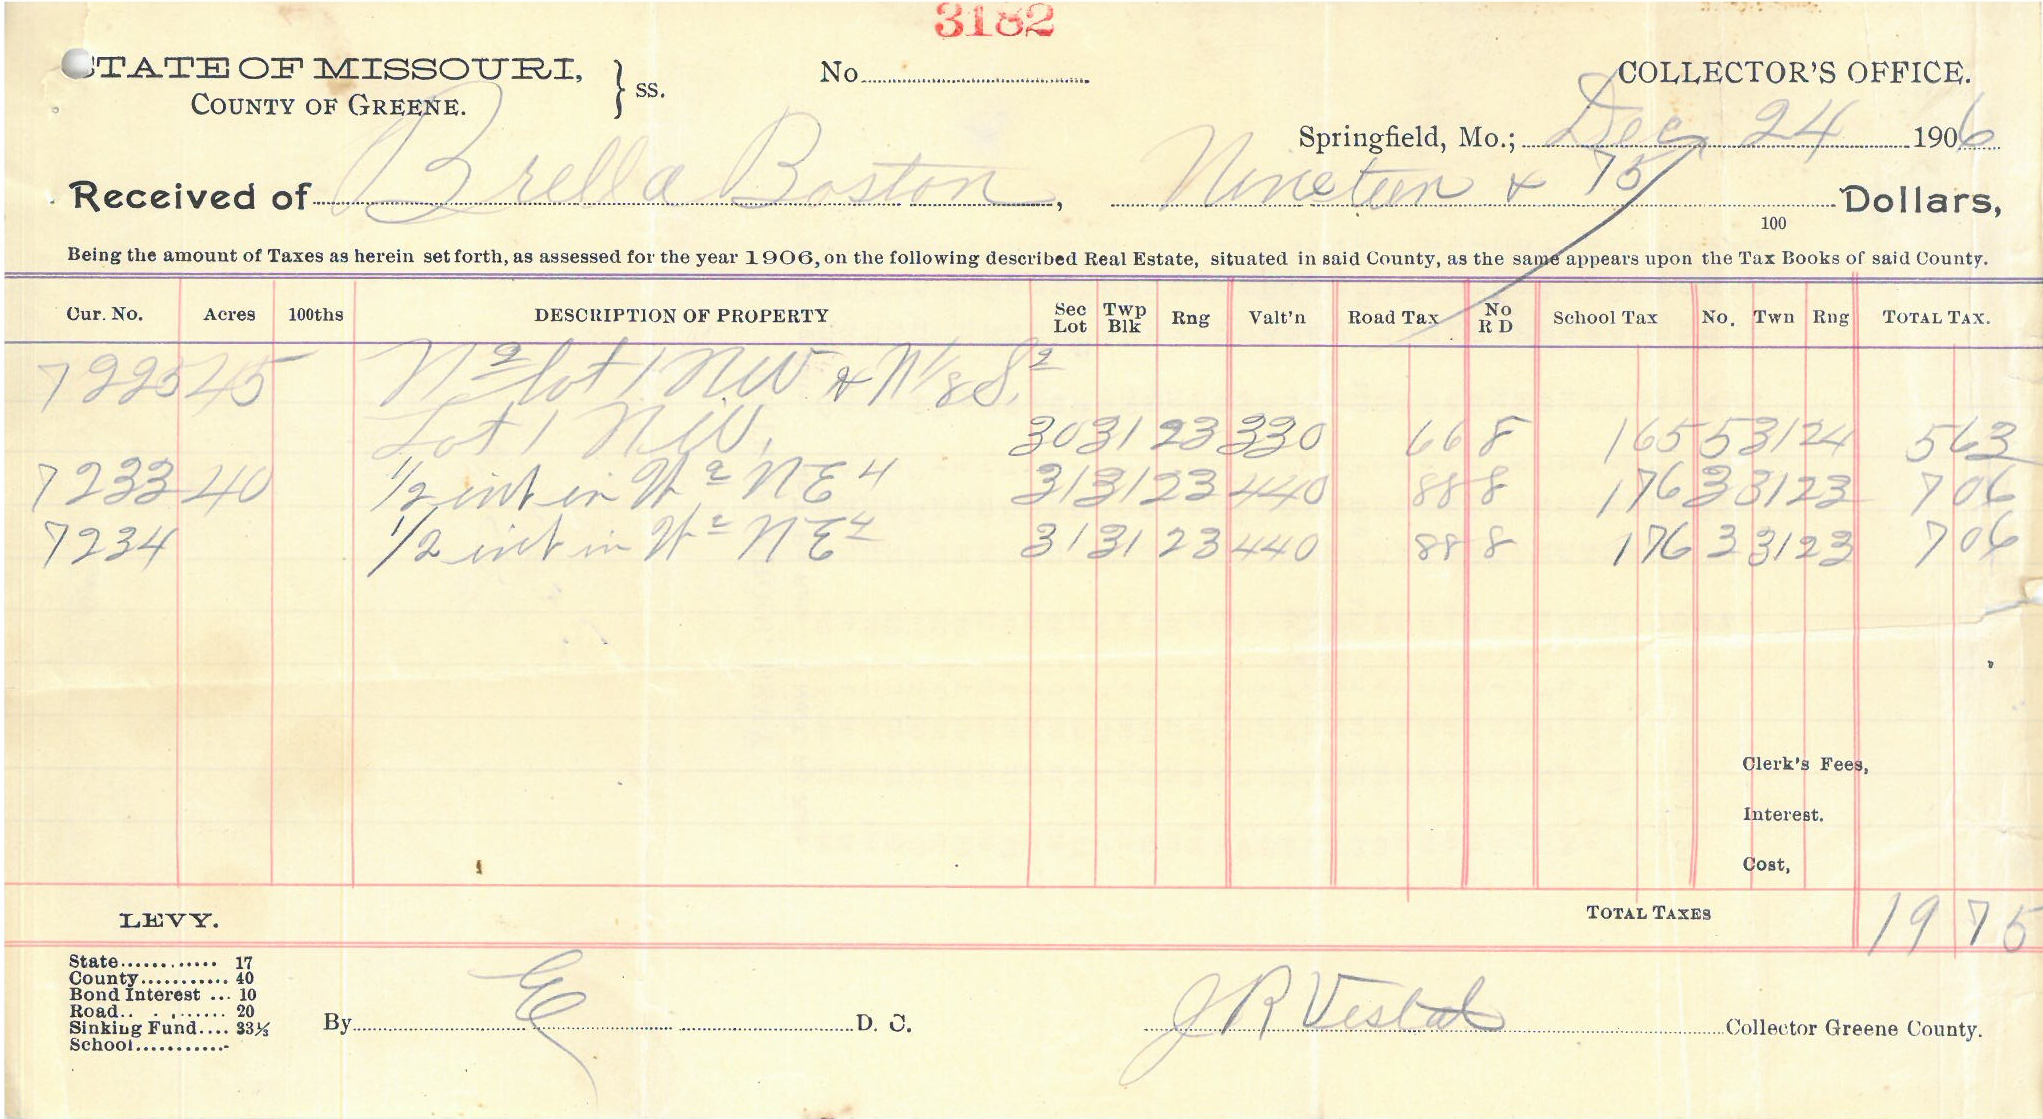 3182
STATE OF MISSOURI, } ss. No. COLLECTOR'S OFFICE.
COUNTY OF GREENE.
Springfield, Mo.; Dec. 24 1906
Received of Brella Boston, Nineteen & 75/100 Dollars,
Being the amount of Taxes as herein set forth, as assessed for the year 1906, on the following described Real Estate, situated in said County, as the same appears upon the Tax Books of said County.
Cur. No. Acres 100ths DESCRIPTION OF PROPERTY Sec Lot Twp Blk Rng Valt'n Road Tax No R D School Tax No. Twn Rng TOTAL TAX.
7225 45 N2 lot 1 NW & N 1/8 S.2
Lot 1 NW, 30 31 23 330 66 8 1 65 5 31 24 5 63
7233 40 1/2 int in W2 NE4 31 31 23 440 88 8 1 76 3 31 23 7 06
7234 1/2 int in W2 NE4 31 31 23 440 88 8 1 76 3 31 23 7 06
Clerk's Fees,
Interest.
Cost,
LEVY. TOTAL TAXES 19 75
State............ 17
County........... 40
Bond Interest ... 10
Road.. . . ...... 20
Sinking Fund.... 33⅓
School...........-
By E D. C. J R Vestal Collector Greene County.